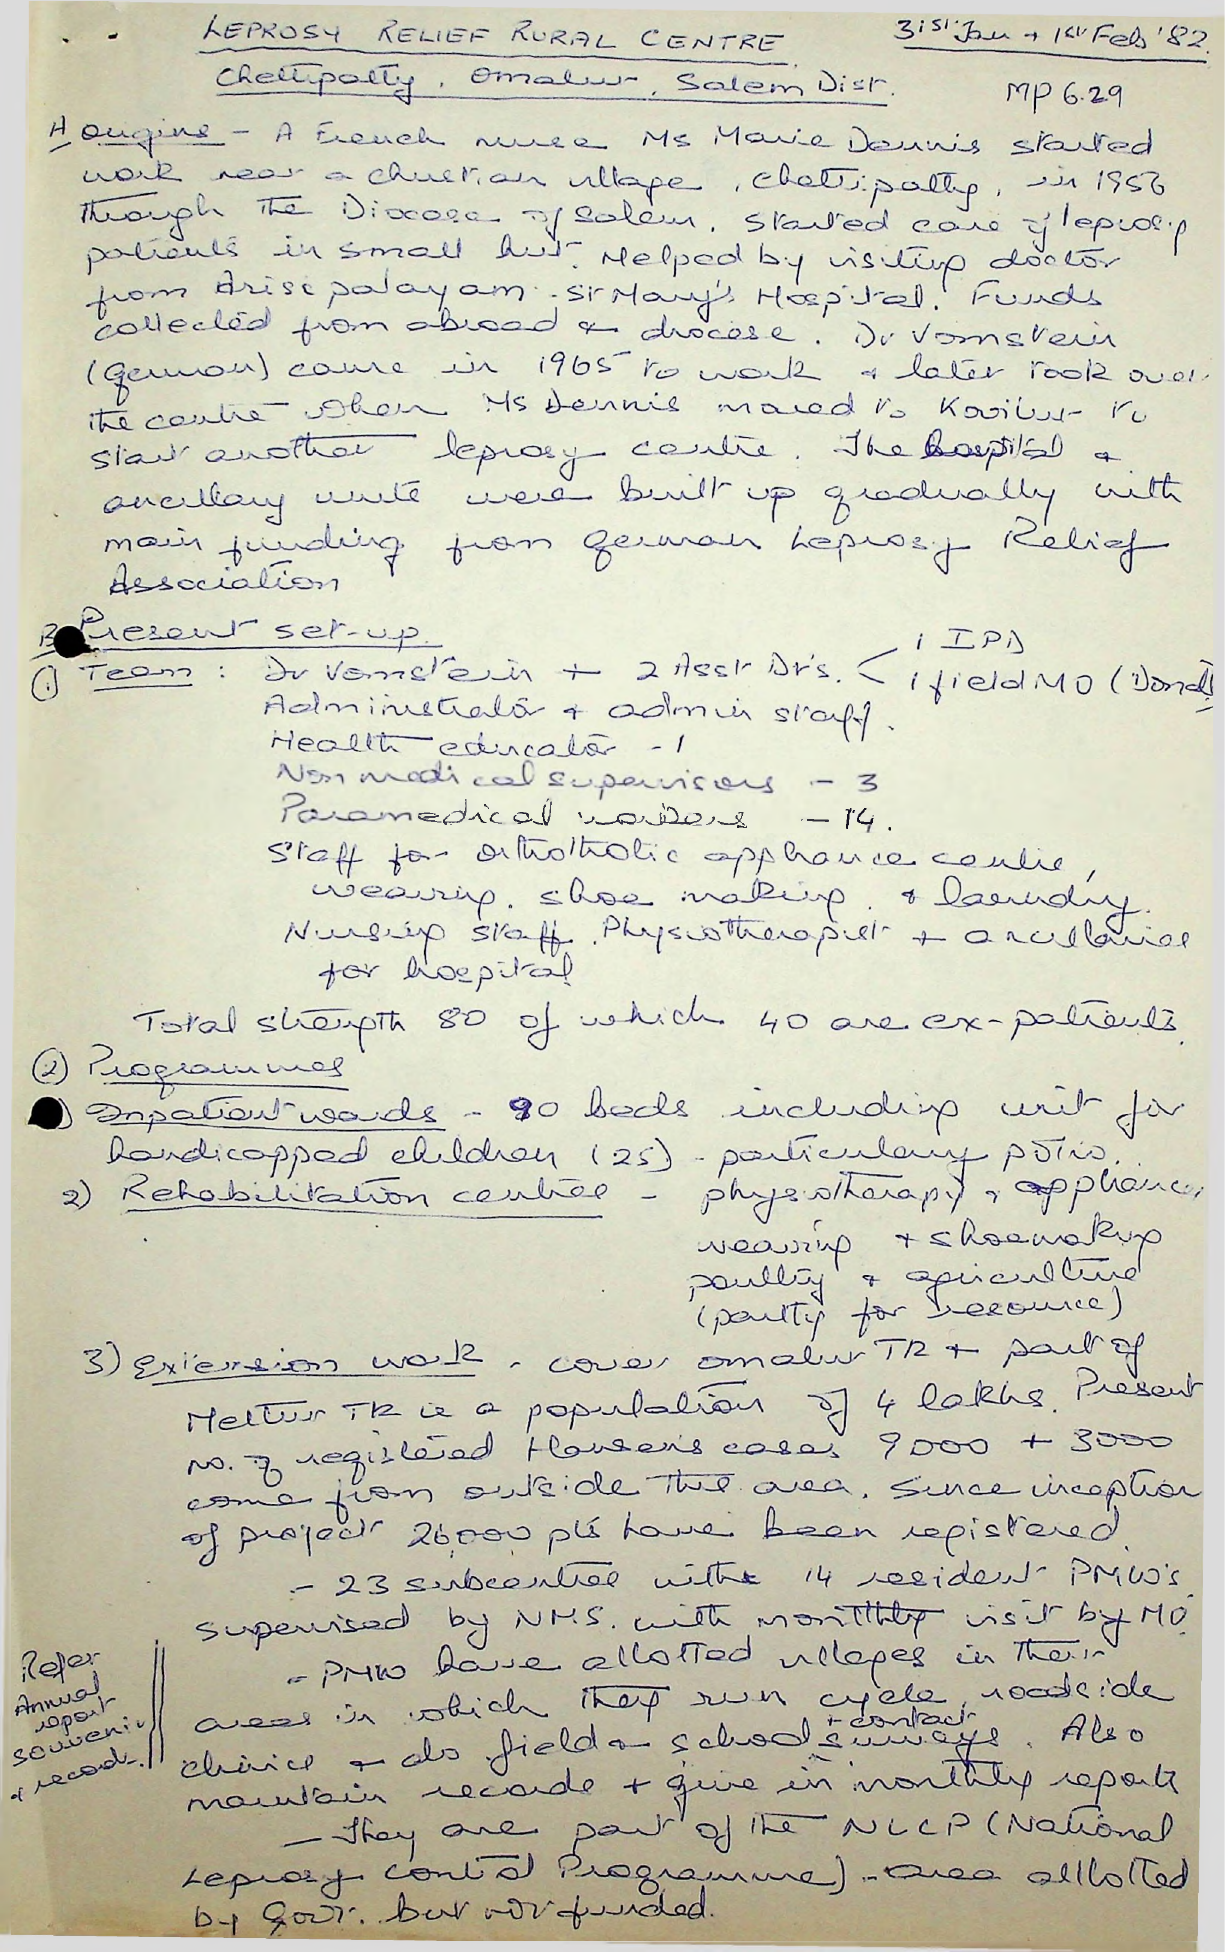 LEPROSY RELIEF RURAL CENTRE
31st Jan + 1st Feb '82.
Chettipatty, Omalur, Salem Dist.
MP 6.29
A Origins - A French nurse Ms Marie Dennis started
work near a christian village, Chettipatty, in 1956
through the Diocese of Salem. Started care of leprosy
patients in small hut. Helped by visiting doctor
from Arisipalayam - St Mary's Hospital. Funds
collected from abroad & diocese. Dr Vomstein
(German) came in 1965 to work & later took over
the centre when Ms Dennis moved to to
start another leprosy centre. The hospital &
ancillary units were built up gradually with
main funding from German Leprosy Relief
Association
B Present set-up.
(1) Team : Dr Vomstein + 2 Asst Dr's. < 1 IPD
1 field MO
Administrator & admin staff.
Health educator - 1
Non medical supervisors - 3
Paramedical workers - 14.
Staff for orthothotic appliance centre,
weaving, shoe making, & laundry.
Nursing staff, Physiotherapist + ancillaries
for hospital
Total strength 80 of which 40 are ex-patients.
(2) Programmes
) Inpatient wards - 90 beds including unit for
handicapped children (25) - particularly polio.
2) Rehabilitation centres - physiotherapy & appliances
weaving + shoemaking
poultry & agriculture
(partly for resource)
3) Extension work - cover Omalur TK + part of
Mettur TK ie a population of 4 lakhs. Present
no. of registered Hansen's cases 9000 + 3000
come from outside this area. Since inception
of project 26000 pts have been registered.
- 23 subcentres with 14 resident PMW's.
supervised by NMS. with monthly visit by MO.
- PMW have allotted villages in their
areas in which they run cycle, roadside
clinics & do field & school + contact surveys. Also
maintain records + give in monthly reports
- They are part of the NLCP (National
Leprosy Control Programme) - area alllotted
by Govt. but not funded.
Refer
Annual
report
souvenir
& records.